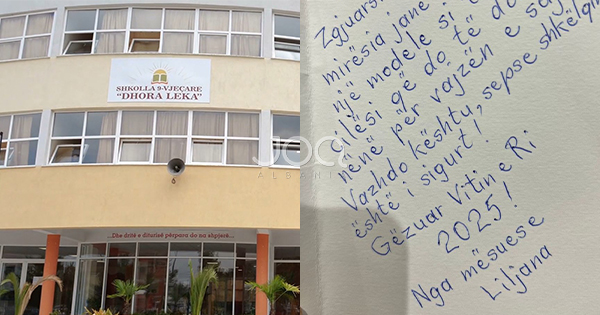 SHKOLLA 9-VJEÇARE
"DHORA LEKA"
...Dhe dritë e diturisë përpara do na shpjerë...
JOQ
ALBANIA
Zgjuarsi
mirësia jane
një modele si
cilësi që do të do
nënë për vajzën e saj
Vazhdo kështu, sepse shkëlqi
është i sigurt!
Gëzuar Vitin e Ri
2025!
Nga mësuese
Liljana